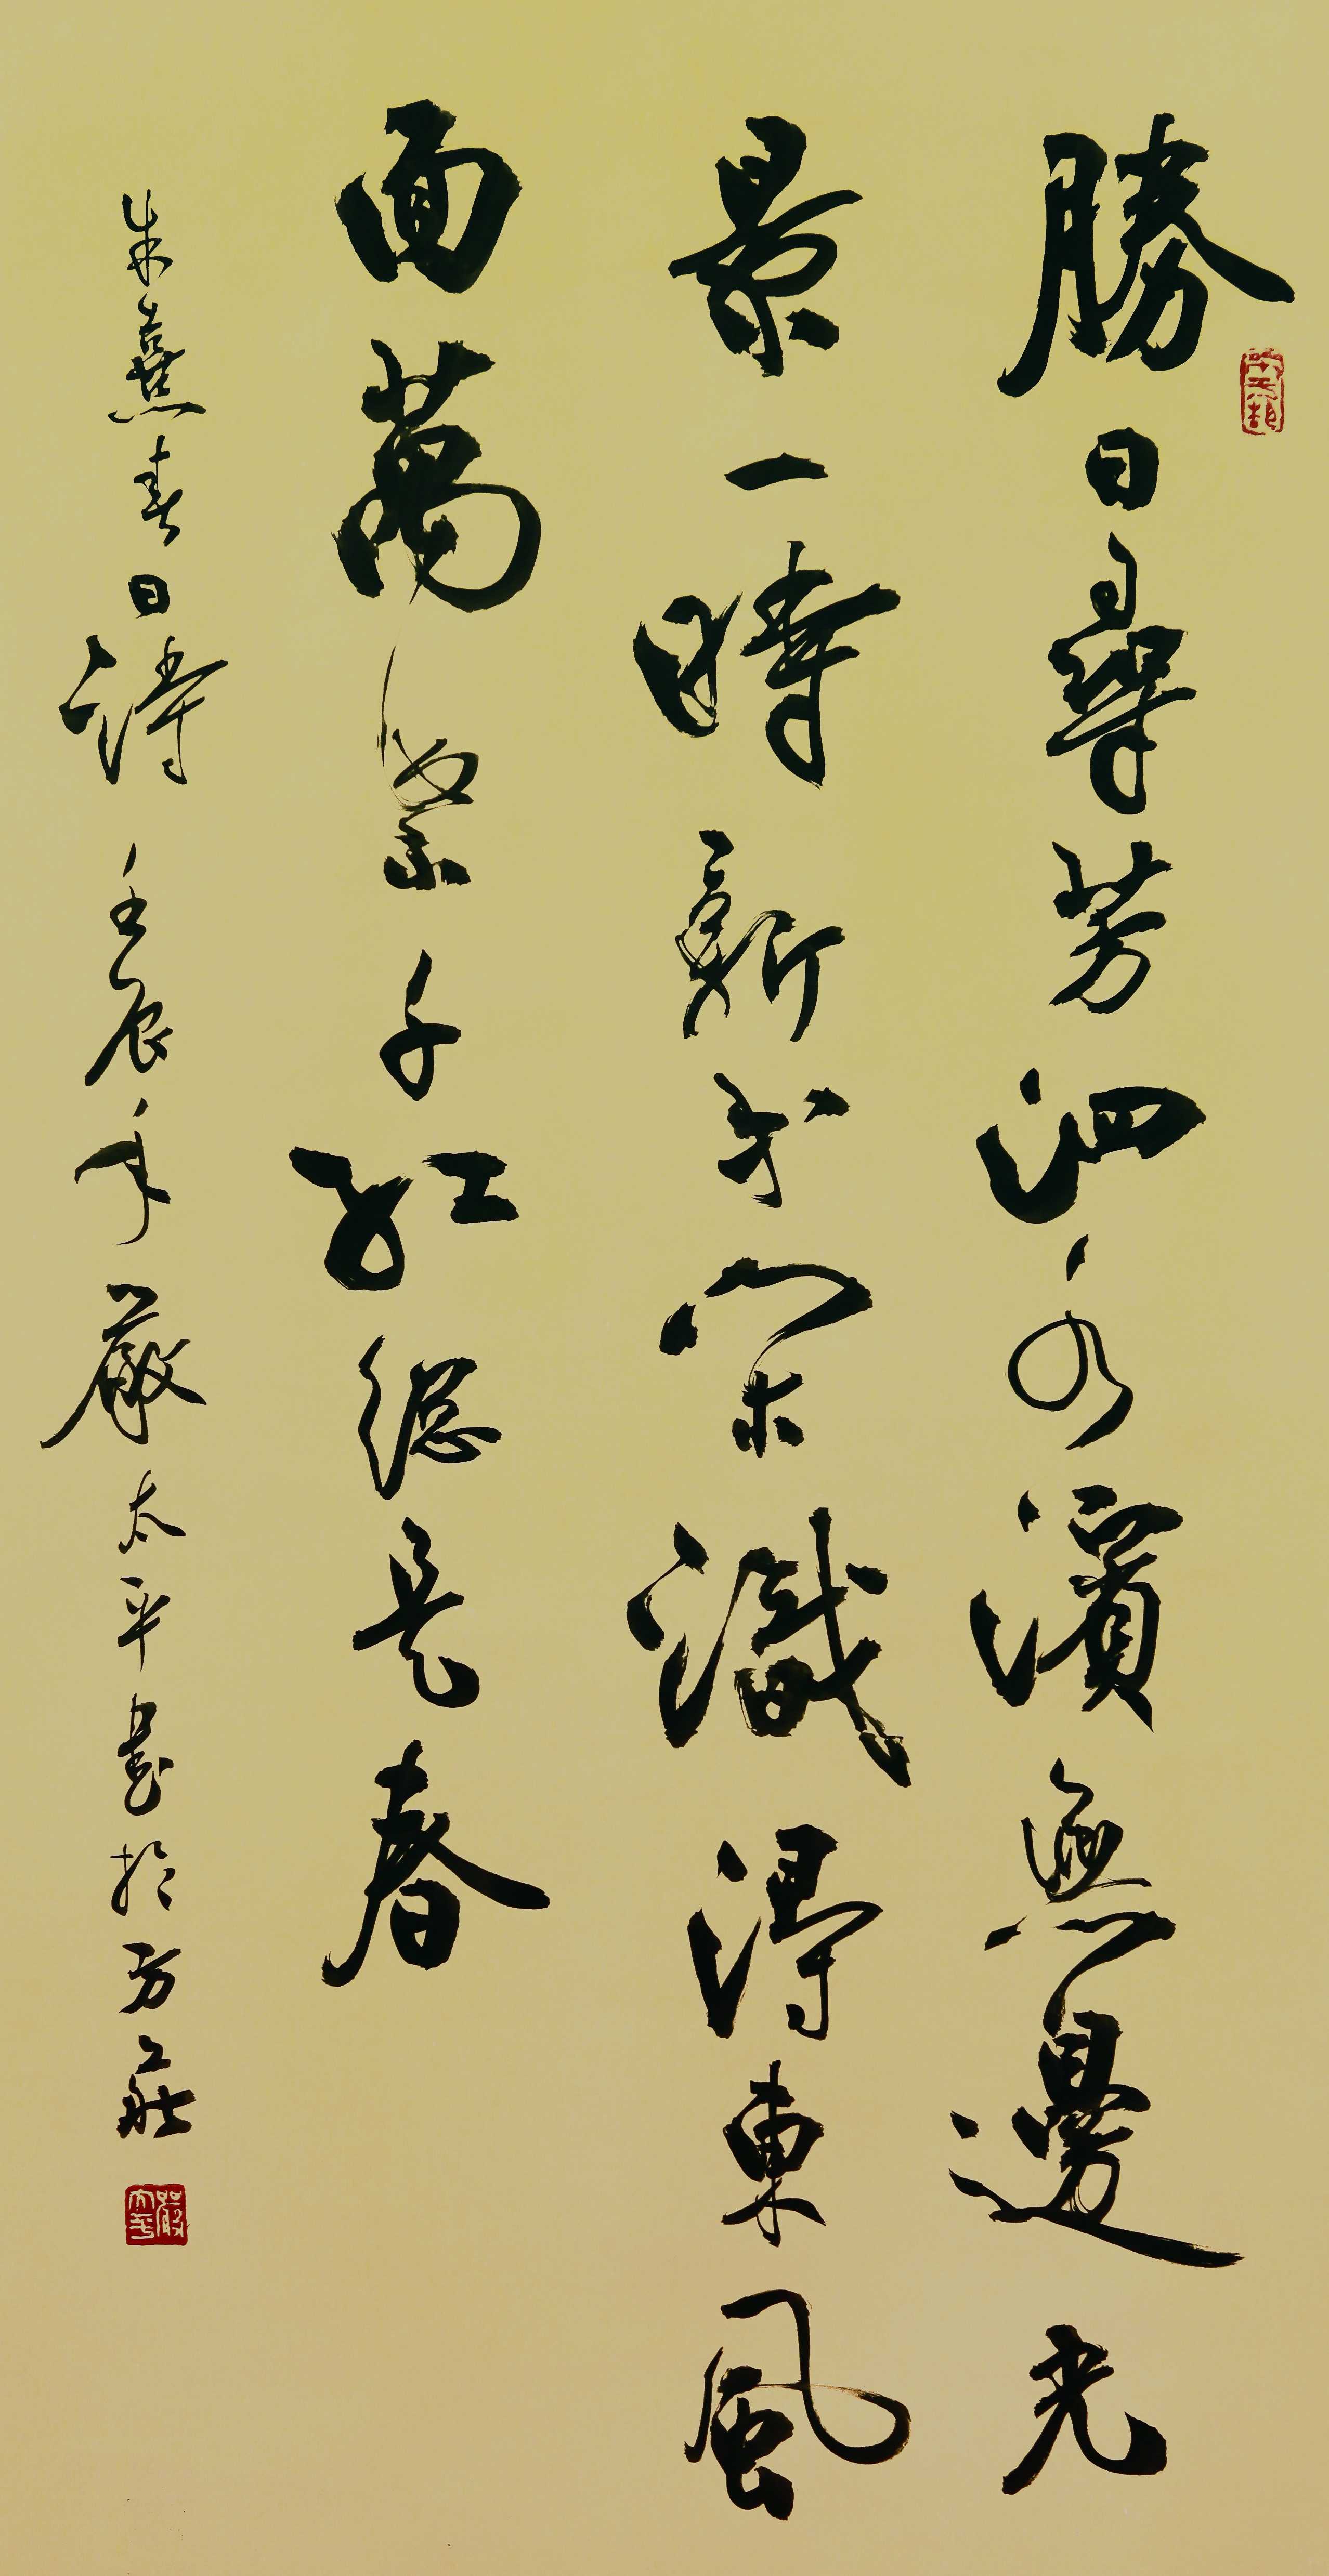 勝日尋芳泗水濱無邊光
景一時新等閑識得東風
面萬紫千紅總是春
朱熹春日詩 壬辰年 嚴太平書於方莊